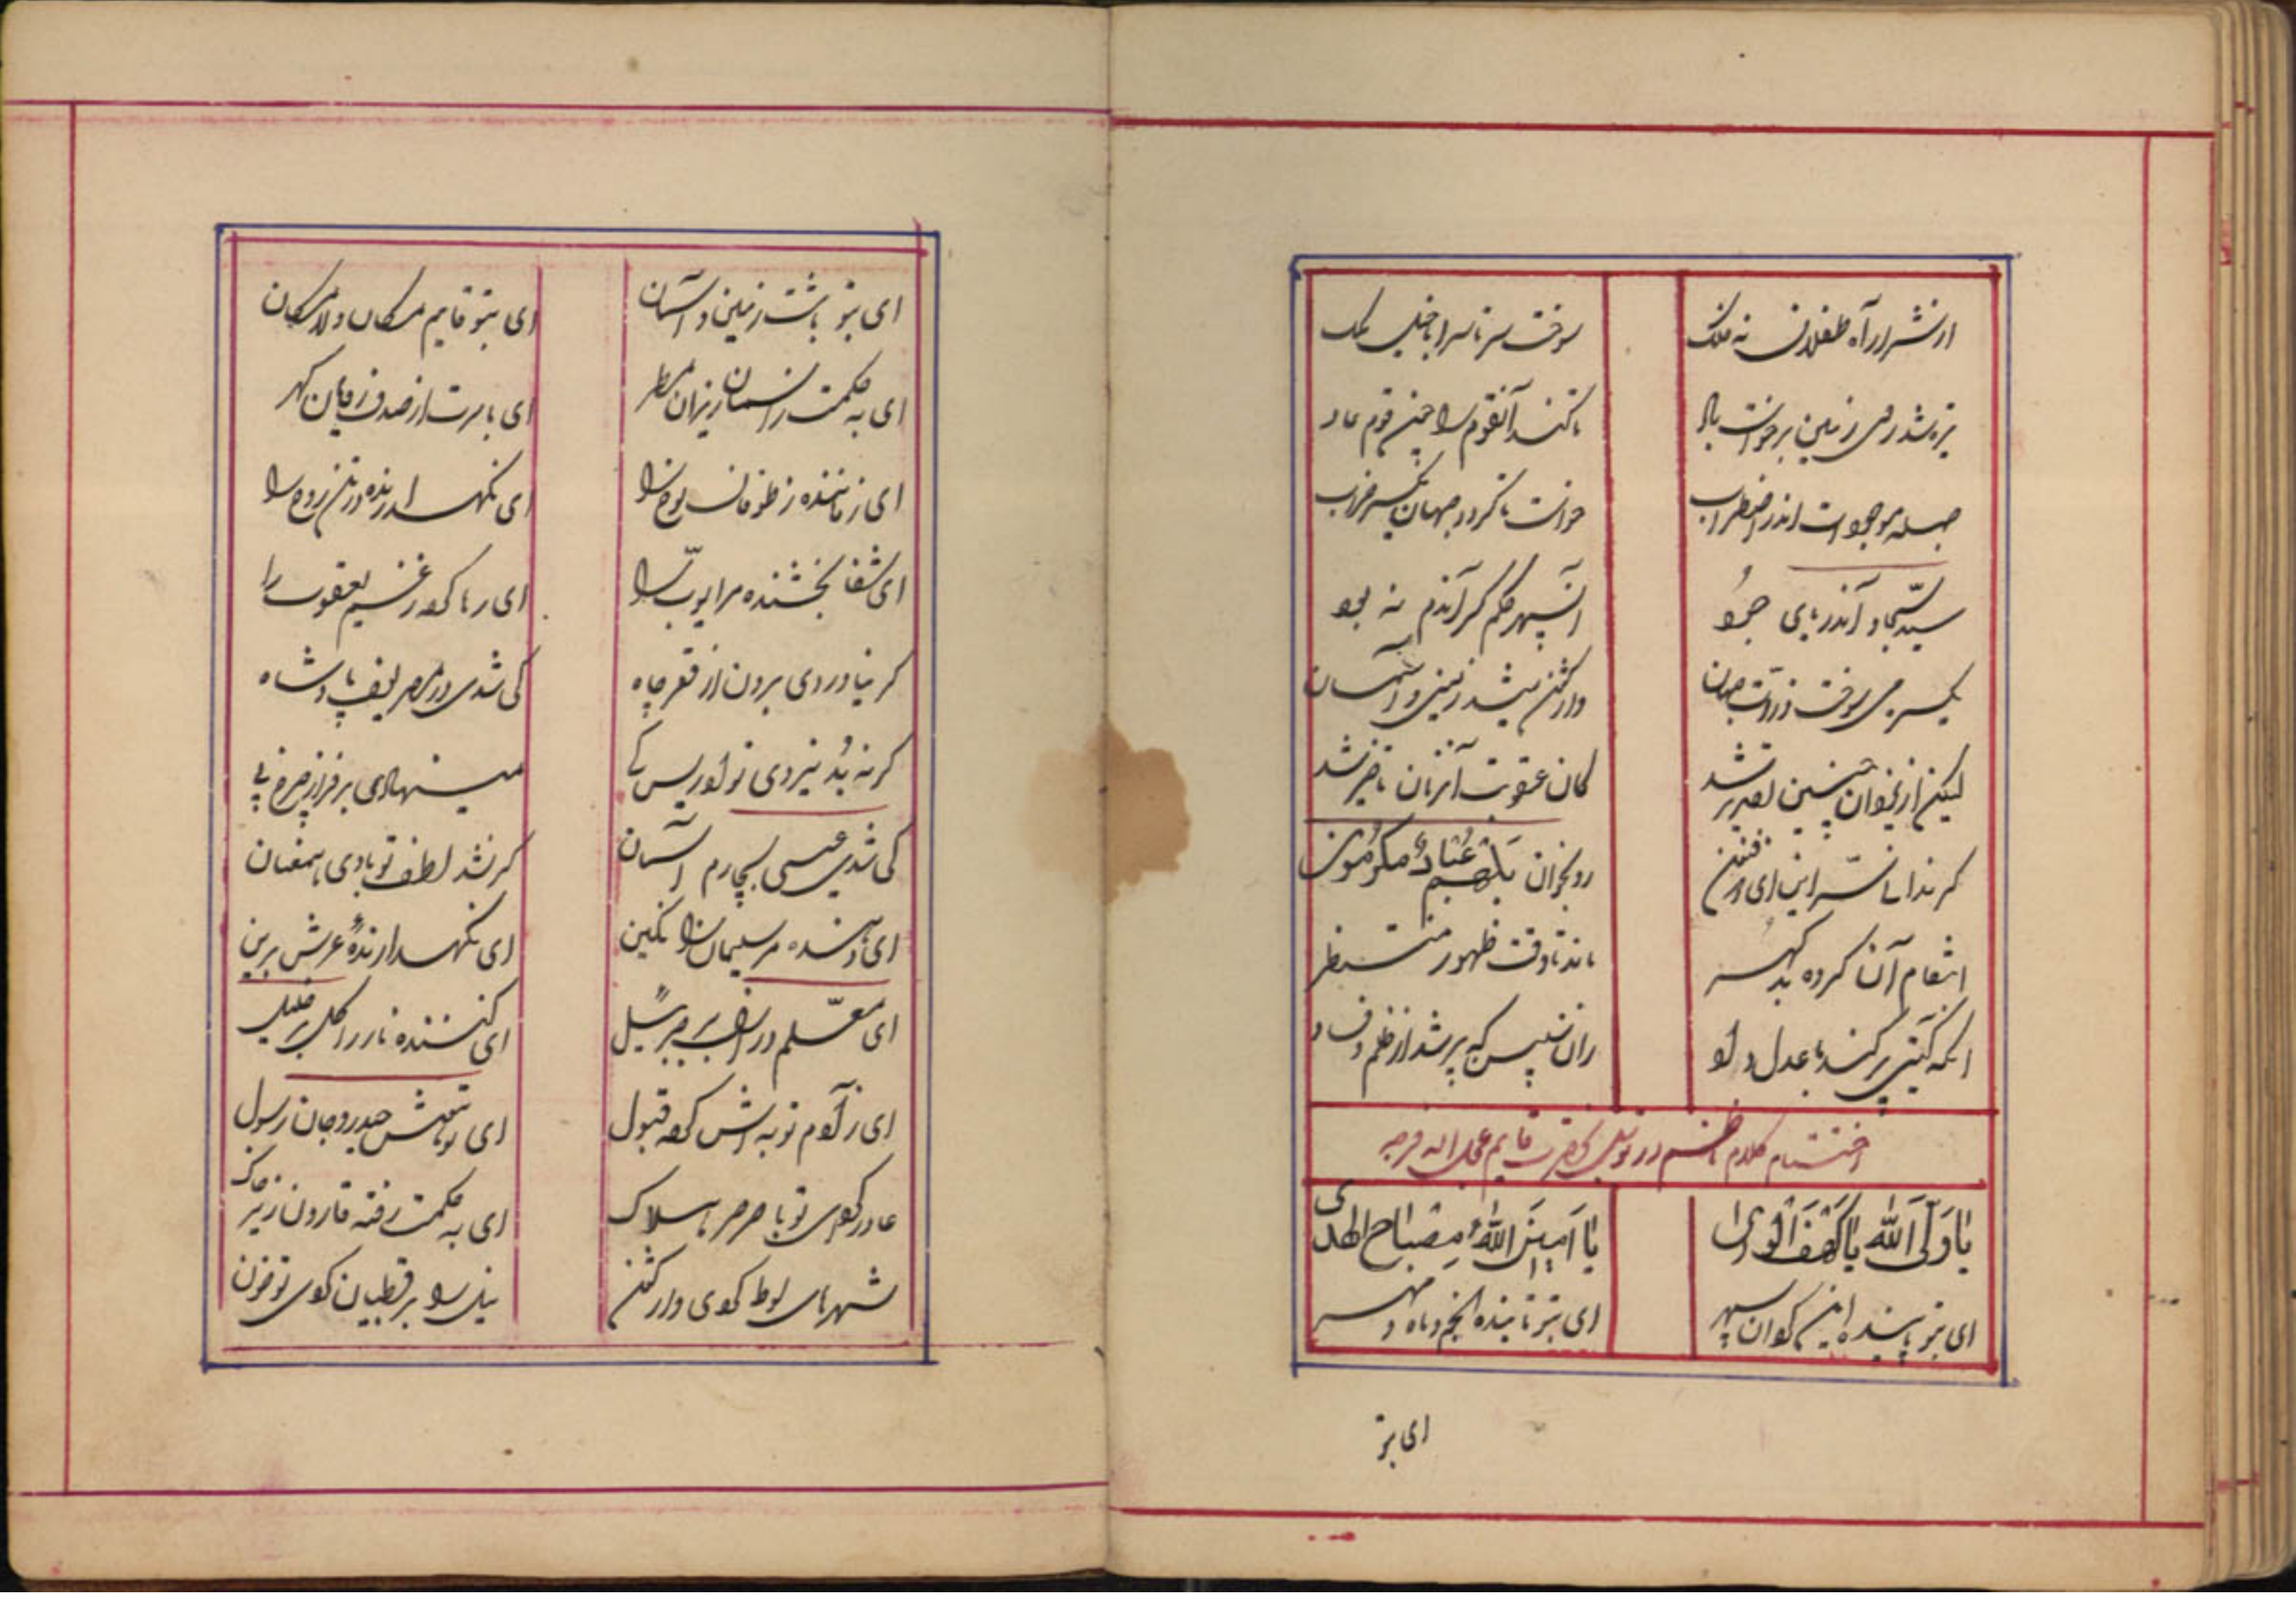 از شرار آه طفلان نه فلک
سوخت سر تا سر ابا خیل ملک
تیره شد روی زمین برخواست باد
تا کند آنقوم را چون قوم عاد
جمله موجودات اندر اضطراب
خواست تا گردد جهان یکسر خراب
سید سجاد آندریای جود
آن سپهر حلم گر آندم نه بود
یکسر می سوخت ذرات جهان
واژگون میشد زمین و آسمان
لیکن از یزدان چنین تقدیر شد
کان عقوبت آنزمان تاخیر شد
گر ندانی سر این ای ذوفنون
رو بخوان بل هم عباد مکرمون
انتقام آن گروه بد گهر
ماند تا وقت ظهور منتظر
آنکه گیتی پر کند با عدل و داد
زان سپس که پر شد از ظلم و فساد
اختتام کلام ناظم در توسل بحضرت قایم عجل الله فرجه
یا ولی الله یا کهف الوری
یا امین الله مصباح الهدی
ای بتو پاینده این گردان سپهر
ای بتو تابنده انجم و ماه و مهر
ای بتو
ای بتو باشت زمین و آسمان
ای بتو قایم مکان و لامکان
ای به حکمت ز آسمان ریزان مطر
ای بامرت از صدف زایان گهر
ای رهاننده ز طوفان نوح را
ای نگهدارنده در تن روح را
ای شفا بخشنده مر ایوب را
ای رها کرده ز غم یعقوب را
گر نیاوردی برون از قعر چاه
کی شدی در مصر یوسف پادشاه
گر نه بُد نیروی تو ادریس کی
مینهادی بر فراز چرخ پی
کی شدی عیسی بچارم آسمان
گر نشد لطف تو با وی همعنان
ای دهنده مر سلیمان را نگین
ای نگهدارندهٔ عرش برین
ای معلم در ازل بر جبرئیل
ای کننده نار را گل بر خلیل
ای ز آدم توبه اش کرده قبول
ای تو نفس حیدر و جان رسول
عاد کردی تو با صرصر هلاک
ای به حکمت رفته قارون زیر خاک
شهرهای لوط کردی واژگون
نیل را بر قبطیان کردی تو خون